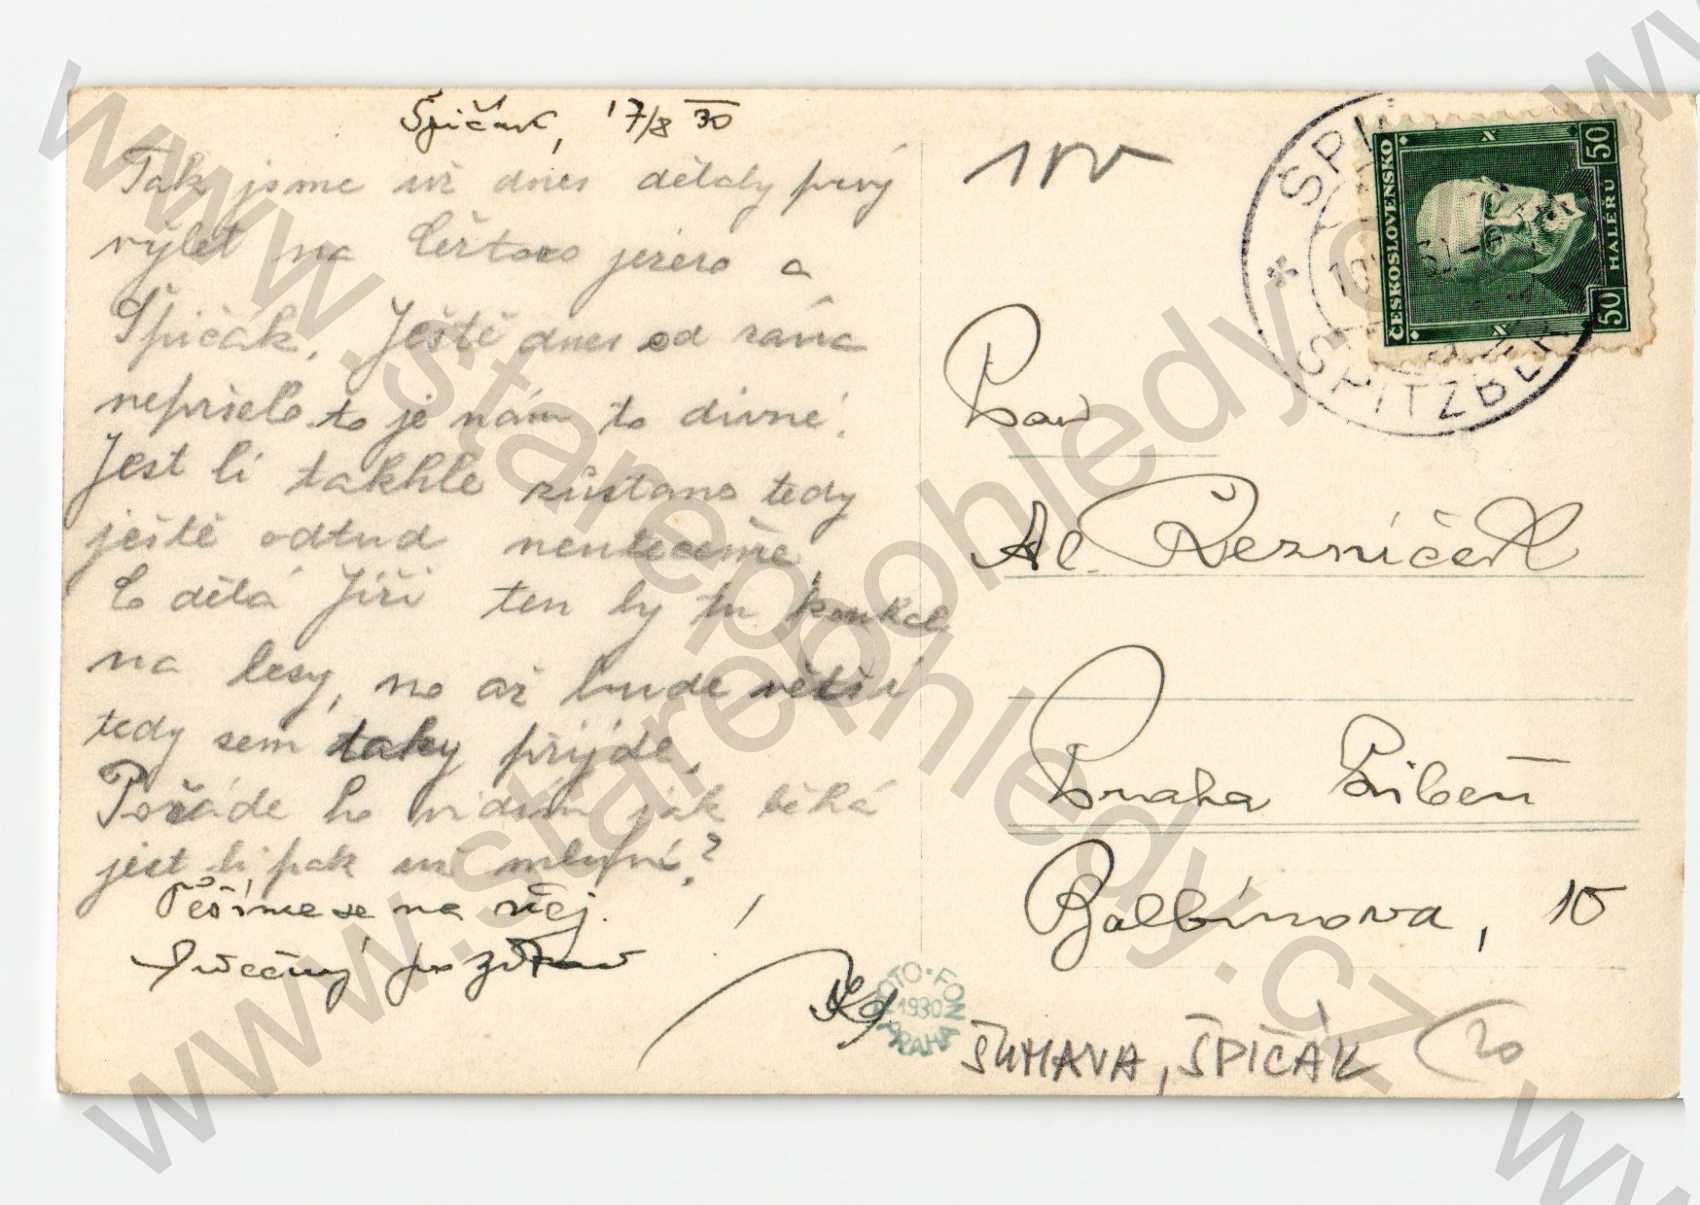 Špičák, 17/8 30
Tak jsme už dnes dělaly prvý
výlet na Čertovo jezero a
Špičák. Ještě dnes od rána
nepršelo to je nám to divné.
Jest li takhle zůstane tedy
ještě odtud neuteceme.
Co dělá Jiří ten by tu koukal
na lesy, no až bude větší
tedy sem taky přijde.
Pořáde ho vidím jak běhá
jest li pak už mluví?
Těšíme se na něj.
Srdečný pozdrav
Pan
Al. Řezníček
Praha Libeň
Balbínova, 10
ŠUMAVA, ŠPIČÁK
20
100
ČESKOSLOVENSKO
50 HALÉŘŮ 50
SPI
SPITZBE
FOTO-FON
1930
PRAHA
www.starepohledy.cz
www.starepohledy.cz